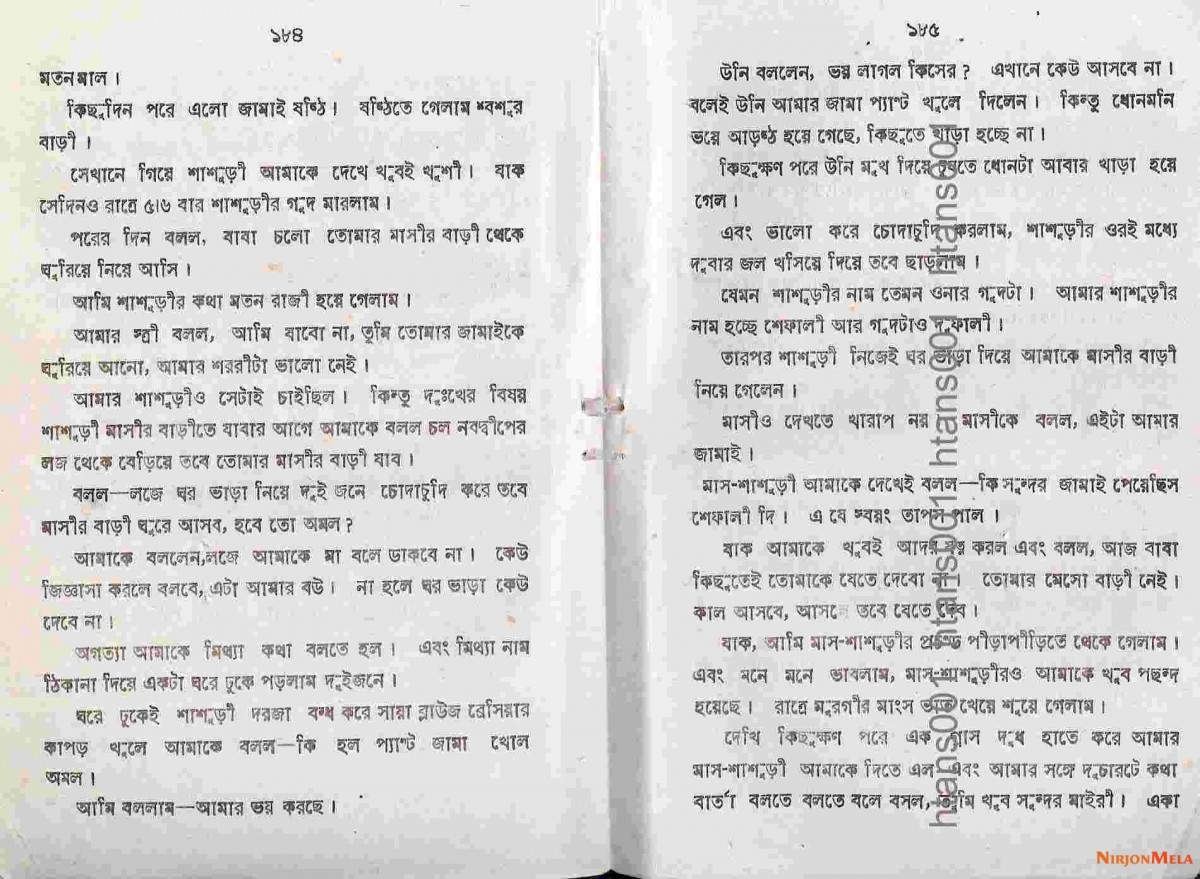 ১৮৪
মতনমাল ।
কিছুদিন পরে এলো জামাই ষষ্ঠি । ষষ্ঠিতে গেলাম শ্বশুর
বাড়ী ।
সেখানে গিয়ে শাশুড়ী আমাকে দেখে খুবই খুশী । যাক
সেদিনও রাত্রে ৫।৬ বার শাশুড়ীর গুদ মারলাম ।
পরের দিন বলল, বাবা চলো তোমার মাসীর বাড়ী থেকে
ঘুরিয়ে নিয়ে আসি ।
আমি শাশুড়ীর কথা মতন রাজী হয়ে গেলাম ।
আমার স্ত্রী বলল, আমি যাবো না, তুমি তোমার জামাইকে
ঘুরিয়ে আনো, আমার শরীরটা ভালো নেই ।
আমার শাশুড়ীও সেটাই চাইছিল । কিন্তু দুঃখের বিষয়
শাশুড়ী মাসীর বাড়ীতে যাবার আগে আমাকে বলল চল নবদ্বীপের
লজ থেকে বেড়িয়ে তবে তোমার মাসীর বাড়ী যাব ।
বলল—লজে ঘর ভাড়া নিয়ে দুই জনে চোদাচুদি করে তবে
মাসীর বাড়ী ঘুরে আসব, হবে তো অমল ?
আমাকে বললেন,লজে আমাকে মা বলে ডাকবে না । কেউ
জিজ্ঞাসা করলে বলবে, এটা আমার বউ । না হলে ঘর ভাড়া কেউ
দেবে না ।
অগত্যা আমাকে মিথ্যা কথা বলতে হল । এবং মিথ্যা নাম
ঠিকানা দিয়ে একটা ঘরে ঢুকে পড়লাম দুইজনে ।
ঘরে ঢুকেই শাশুড়ী দরজা বন্ধ করে সায়া ব্লাউজ ব্রেসিয়ার
কাপড় খুলে আমাকে বলল—কি হল প্যান্ট জামা খোল
অমল ।
আমি বললাম—আমার ভয় করছে ।
১৮৫
উনি বললেন, ভয় লাগল কিসের ? এখানে কেউ আসবে না ।
বলেই উনি আমার জামা প্যান্ট খুলে দিলেন । কিন্তু ধোনমনি
ভয়ে আড়ষ্ঠ হয়ে গেছে, কিছুতে খাড়া হচ্ছে না ।
কিছুক্ষণ পরে উনি মুখ দিয়ে চুষতে ধোনটা আবার খাড়া হয়ে
গেল ।
এবং ভালো করে চোদাচুদি করলাম, শাশুড়ীর ওরই মধ্যে
দুবার জল খসিয়ে দিয়ে তবে ছাড়লাম ।
যেমন শাশুড়ীর নাম তেমন ওনার গুদটা । আমার শাশুড়ীর
নাম হচ্ছে শেফালী আর গুদটাও দুফালী ।
তারপর শাশুড়ী নিজেই ঘর ভাড়া দিয়ে আমাকে মাসীর বাড়ী
নিয়ে গেলেন ।
মাসীও দেখতে খারাপ নয় মাসীকে বলল, এইটা আমার
জামাই ।
মাস-শাশুড়ী আমাকে দেখেই বলল—কি সুন্দর জামাই পেয়েছিস
শেফালী দি । এ যে স্বয়ং তাপস পাল ।
যাক আমাকে খুবই আদর যত্ন করল এবং বলল, আজ বাবা
কিছুতেই তোমাকে যেতে দেবো না । তোমার মেসো বাড়ী নেই ।
কাল আসবে, আসলে তবে যেতে দেব ।
যাক, আমি মাস-শাশুড়ীর প্রচন্ড পীড়াপীড়িতে থেকে গেলাম ।
এবং মনে মনে ভাবলাম, মাস-শাশুড়ীরও আমাকে খুব পছন্দ
হয়েছে । রাত্রে মুরগীর মাংস ভাত খেয়ে শুয়ে গেলাম ।
দেখি কিছুক্ষণ পরে এক গ্লাস দুধ হাতে করে আমার
মাস-শাশুড়ী আমাকে দিতে এল এবং আমার সঙ্গে দুচারটে কথা
বার্তা বলতে বলতে বলে বসল, তুমি খুব সুন্দর মাইরী । একা
htans001 htans001 htans001 htans001
NIRJONMELA